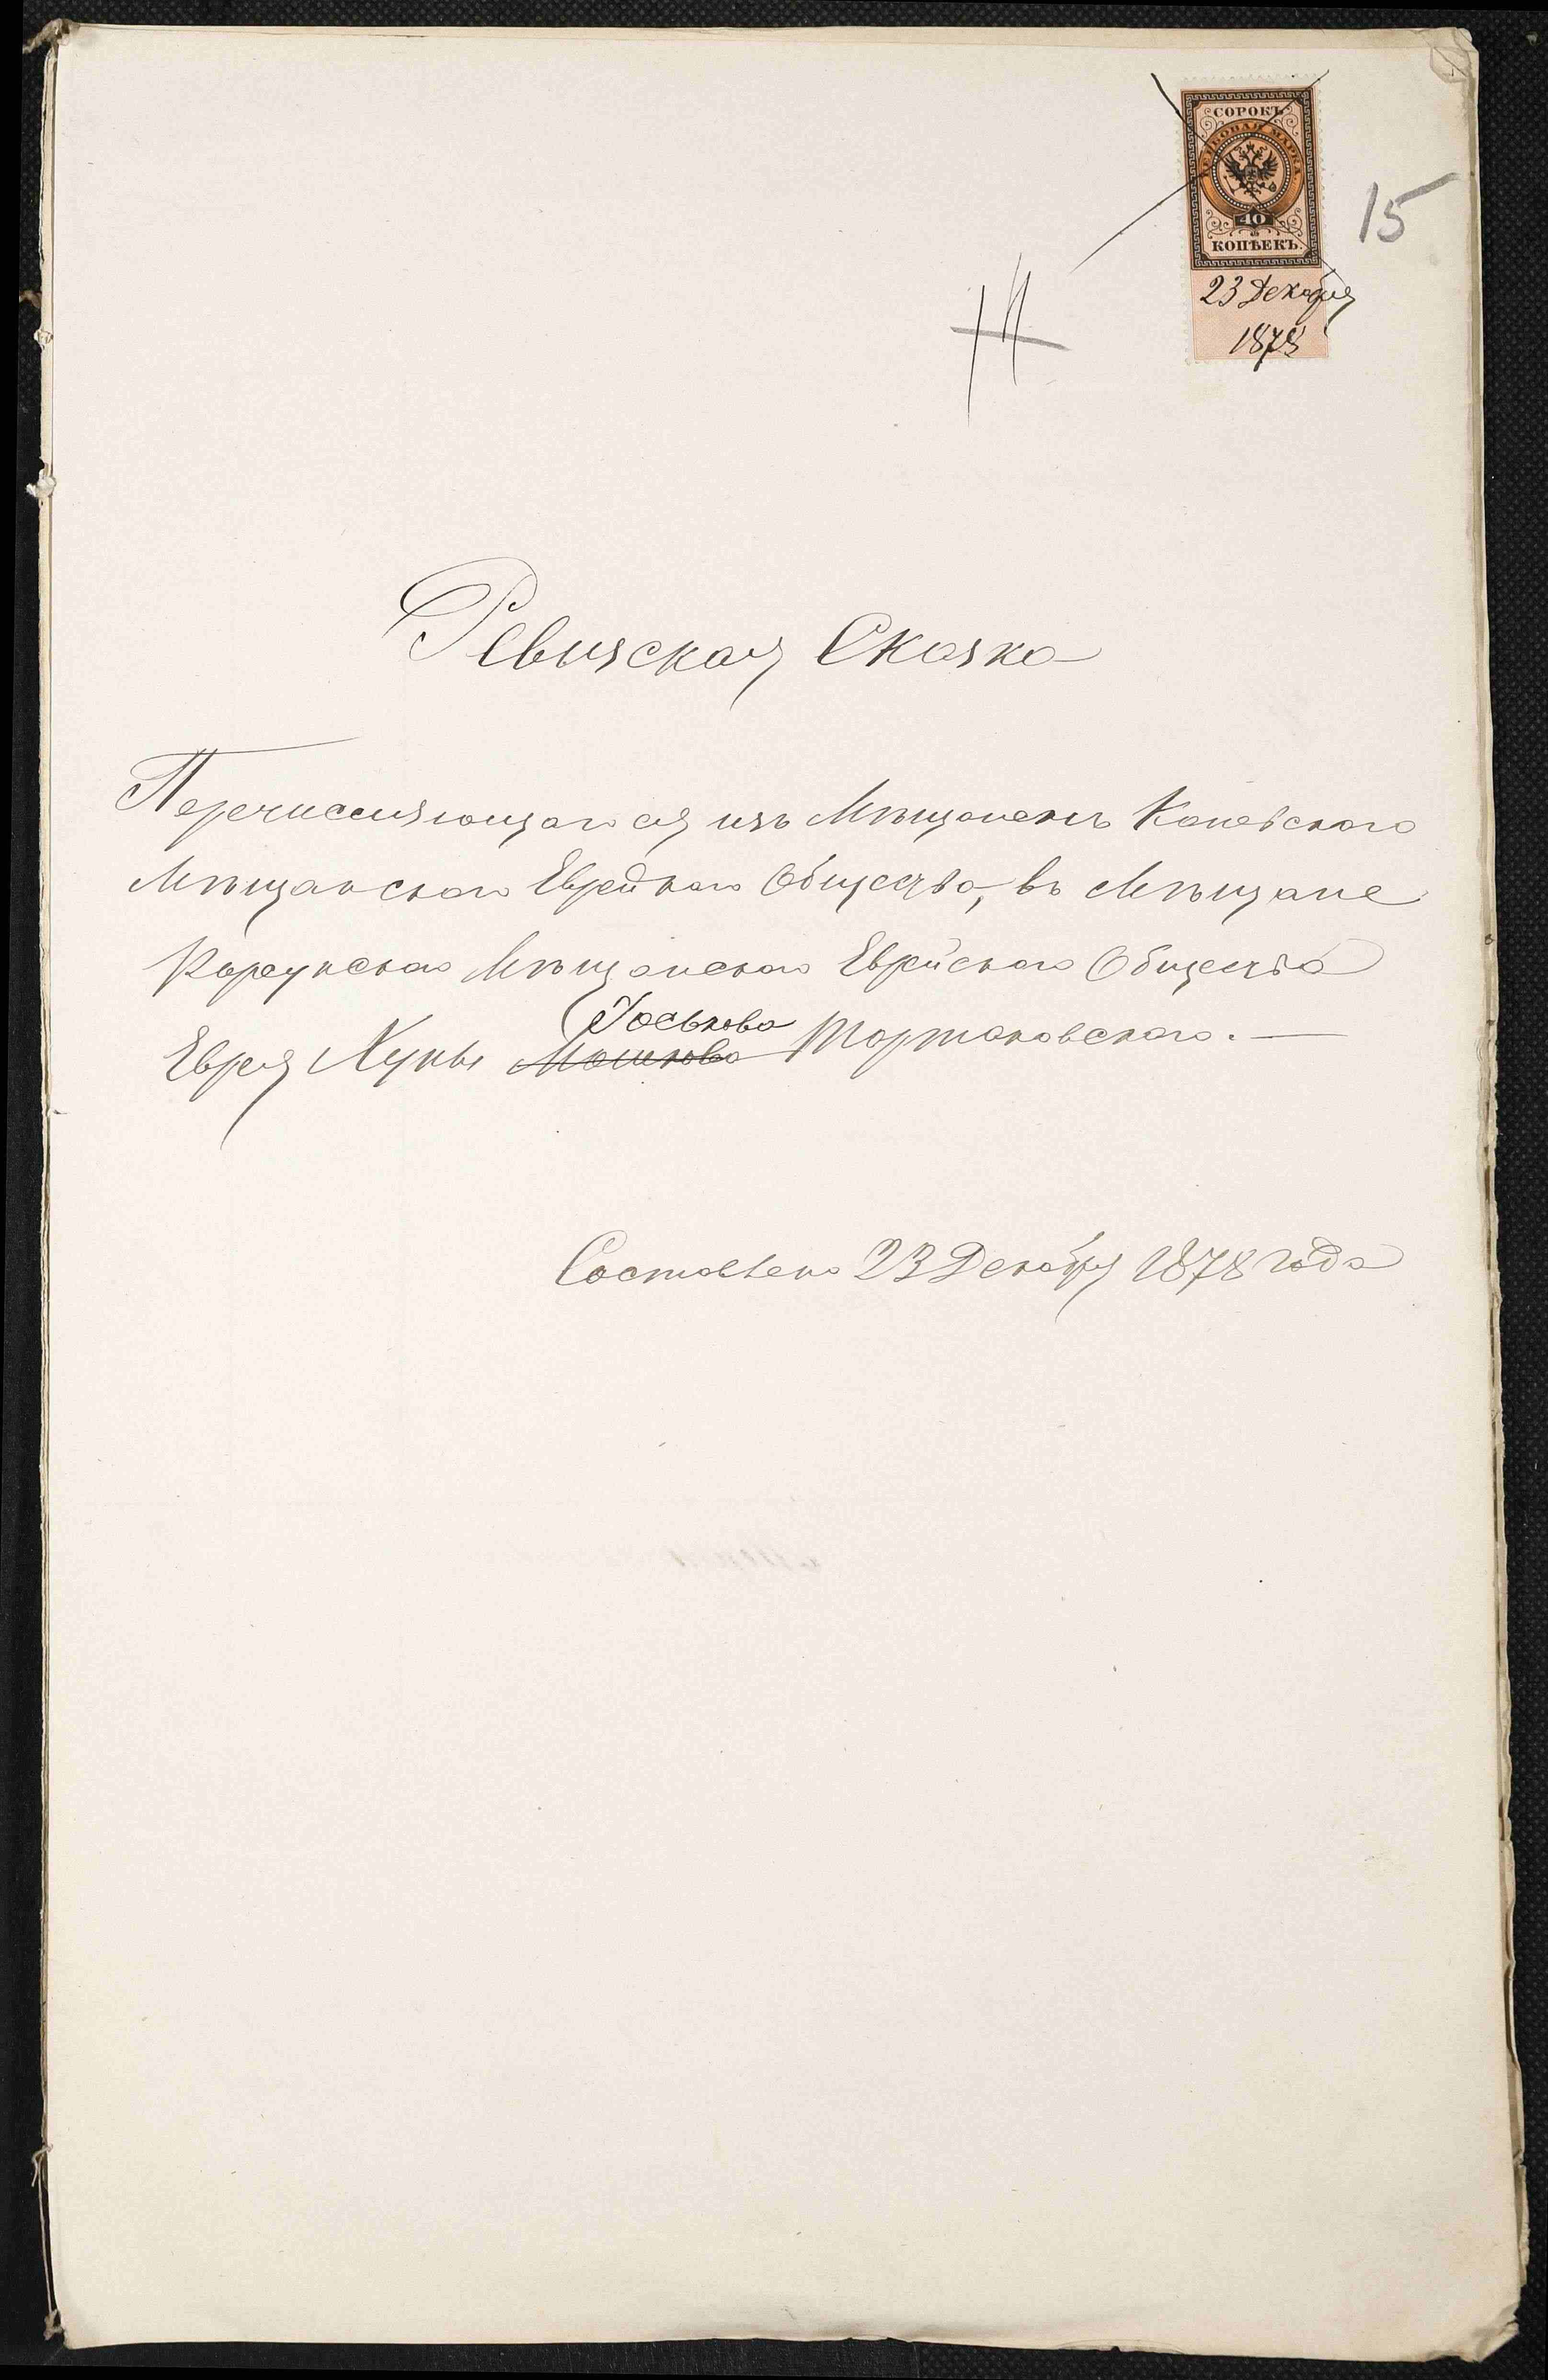 СОРОКЪ
ГЕРБОВАЯ МАРКА
40
КОПѢЕКЪ.
15
23 Декабря
1878
Ревизская Сказка
Перечисляющагося изъ Мѣщанъ Каневскаго
Мѣщанскаго Еврейскаго Общества, въ Мѣщане
Корсунскаго Мѣщанскаго Еврейскаго Общества
Іоськова
Еврея Хуны Мошкова Тортаковскаго. —
Составлена 23 Декабря 1878 года